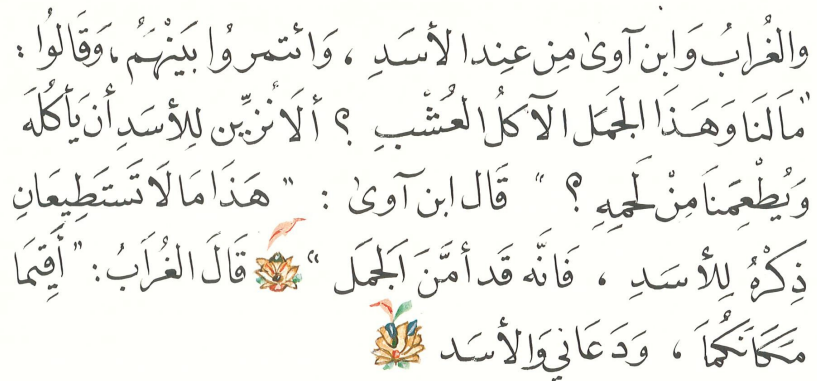 والغُرابُ وَابن آوىٰ مِن عِندِ الأسَدِ ، وَائتمروُا بَيْنَهُمُ ، وَقَالوُا :
"مَا لَنَا وَهَذَا الجَمَل الآكلُ العُشْبِ ؟ ألَا نُزَيِّن لِلأسَدِ أن يَأكُلَه
وَيُطْعِمَنَا مِنْ لَحمِهِ ؟ " قَال ابن آوىٰ : " هَذَا مَا لَا تَستَطِيعَانِ
ذِكْرُهُ لِلأسَدِ ، فَانَّه قَد أمَّنَ اَلجمَل " قَالَ الغُرَابُ : " أَقِيمَا
مَكَانَكُمَا ، وَدَعَاني وَالأسَد